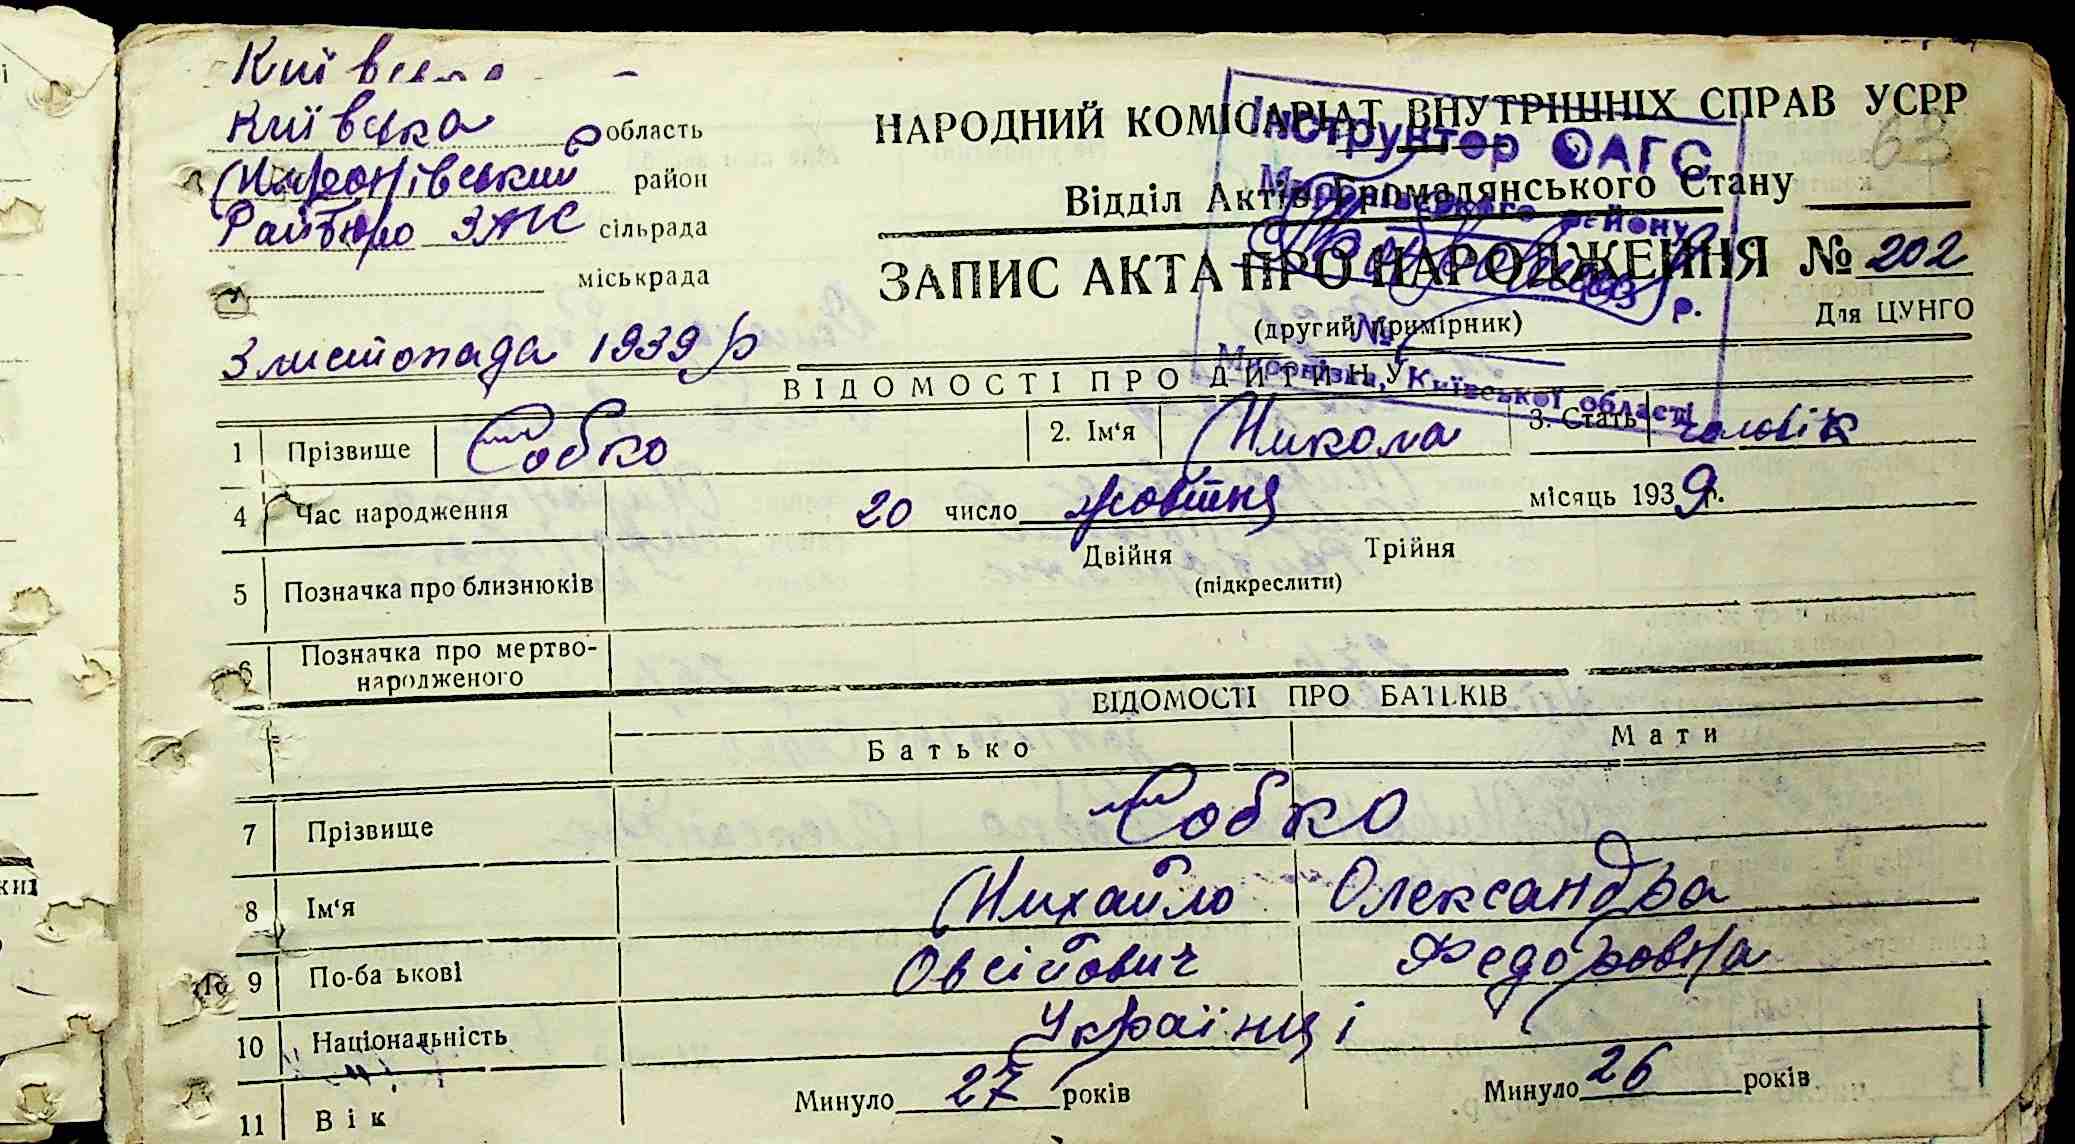 Київська
Київська область
Миронівський район
Райбюро ЗАГС сільрада
міськрада
3 листопада 1939 р
НАРОДНИЙ КОМІСАРІАТ ВНУТРІШНІХ СПРАВ УСРР
63
Відділ Актів Громадянського Стану
ЗАПИС АКТА ПРО НАРОДЖЕННЯ № 202
(другий примірник)
Для ЦУНГО
Інструктор ОАГС
Миронівського району
р.
№
Миронівка, Київської області
ВІДОМОСТІ ПРО ДИТИНУ
1 Прізвище Собко 2. Ім'я Микола 3. Стать чоловік
4 Час народження 20 число жовтня місяць 1939 р.
5 Позначка про близнюків Двійня Трійня
(підкреслити)
6 Позначка про мертво-
народженого
ВІДОМОСТІ ПРО БАТЬКІВ
Батько Мати
7 Прізвище Собко
8 Ім'я Михайло Олександра
9 По-ба ькові Овсійович Федоровна
10 Національність Українці
11 Вік Минуло 27 років Минуло 26 років